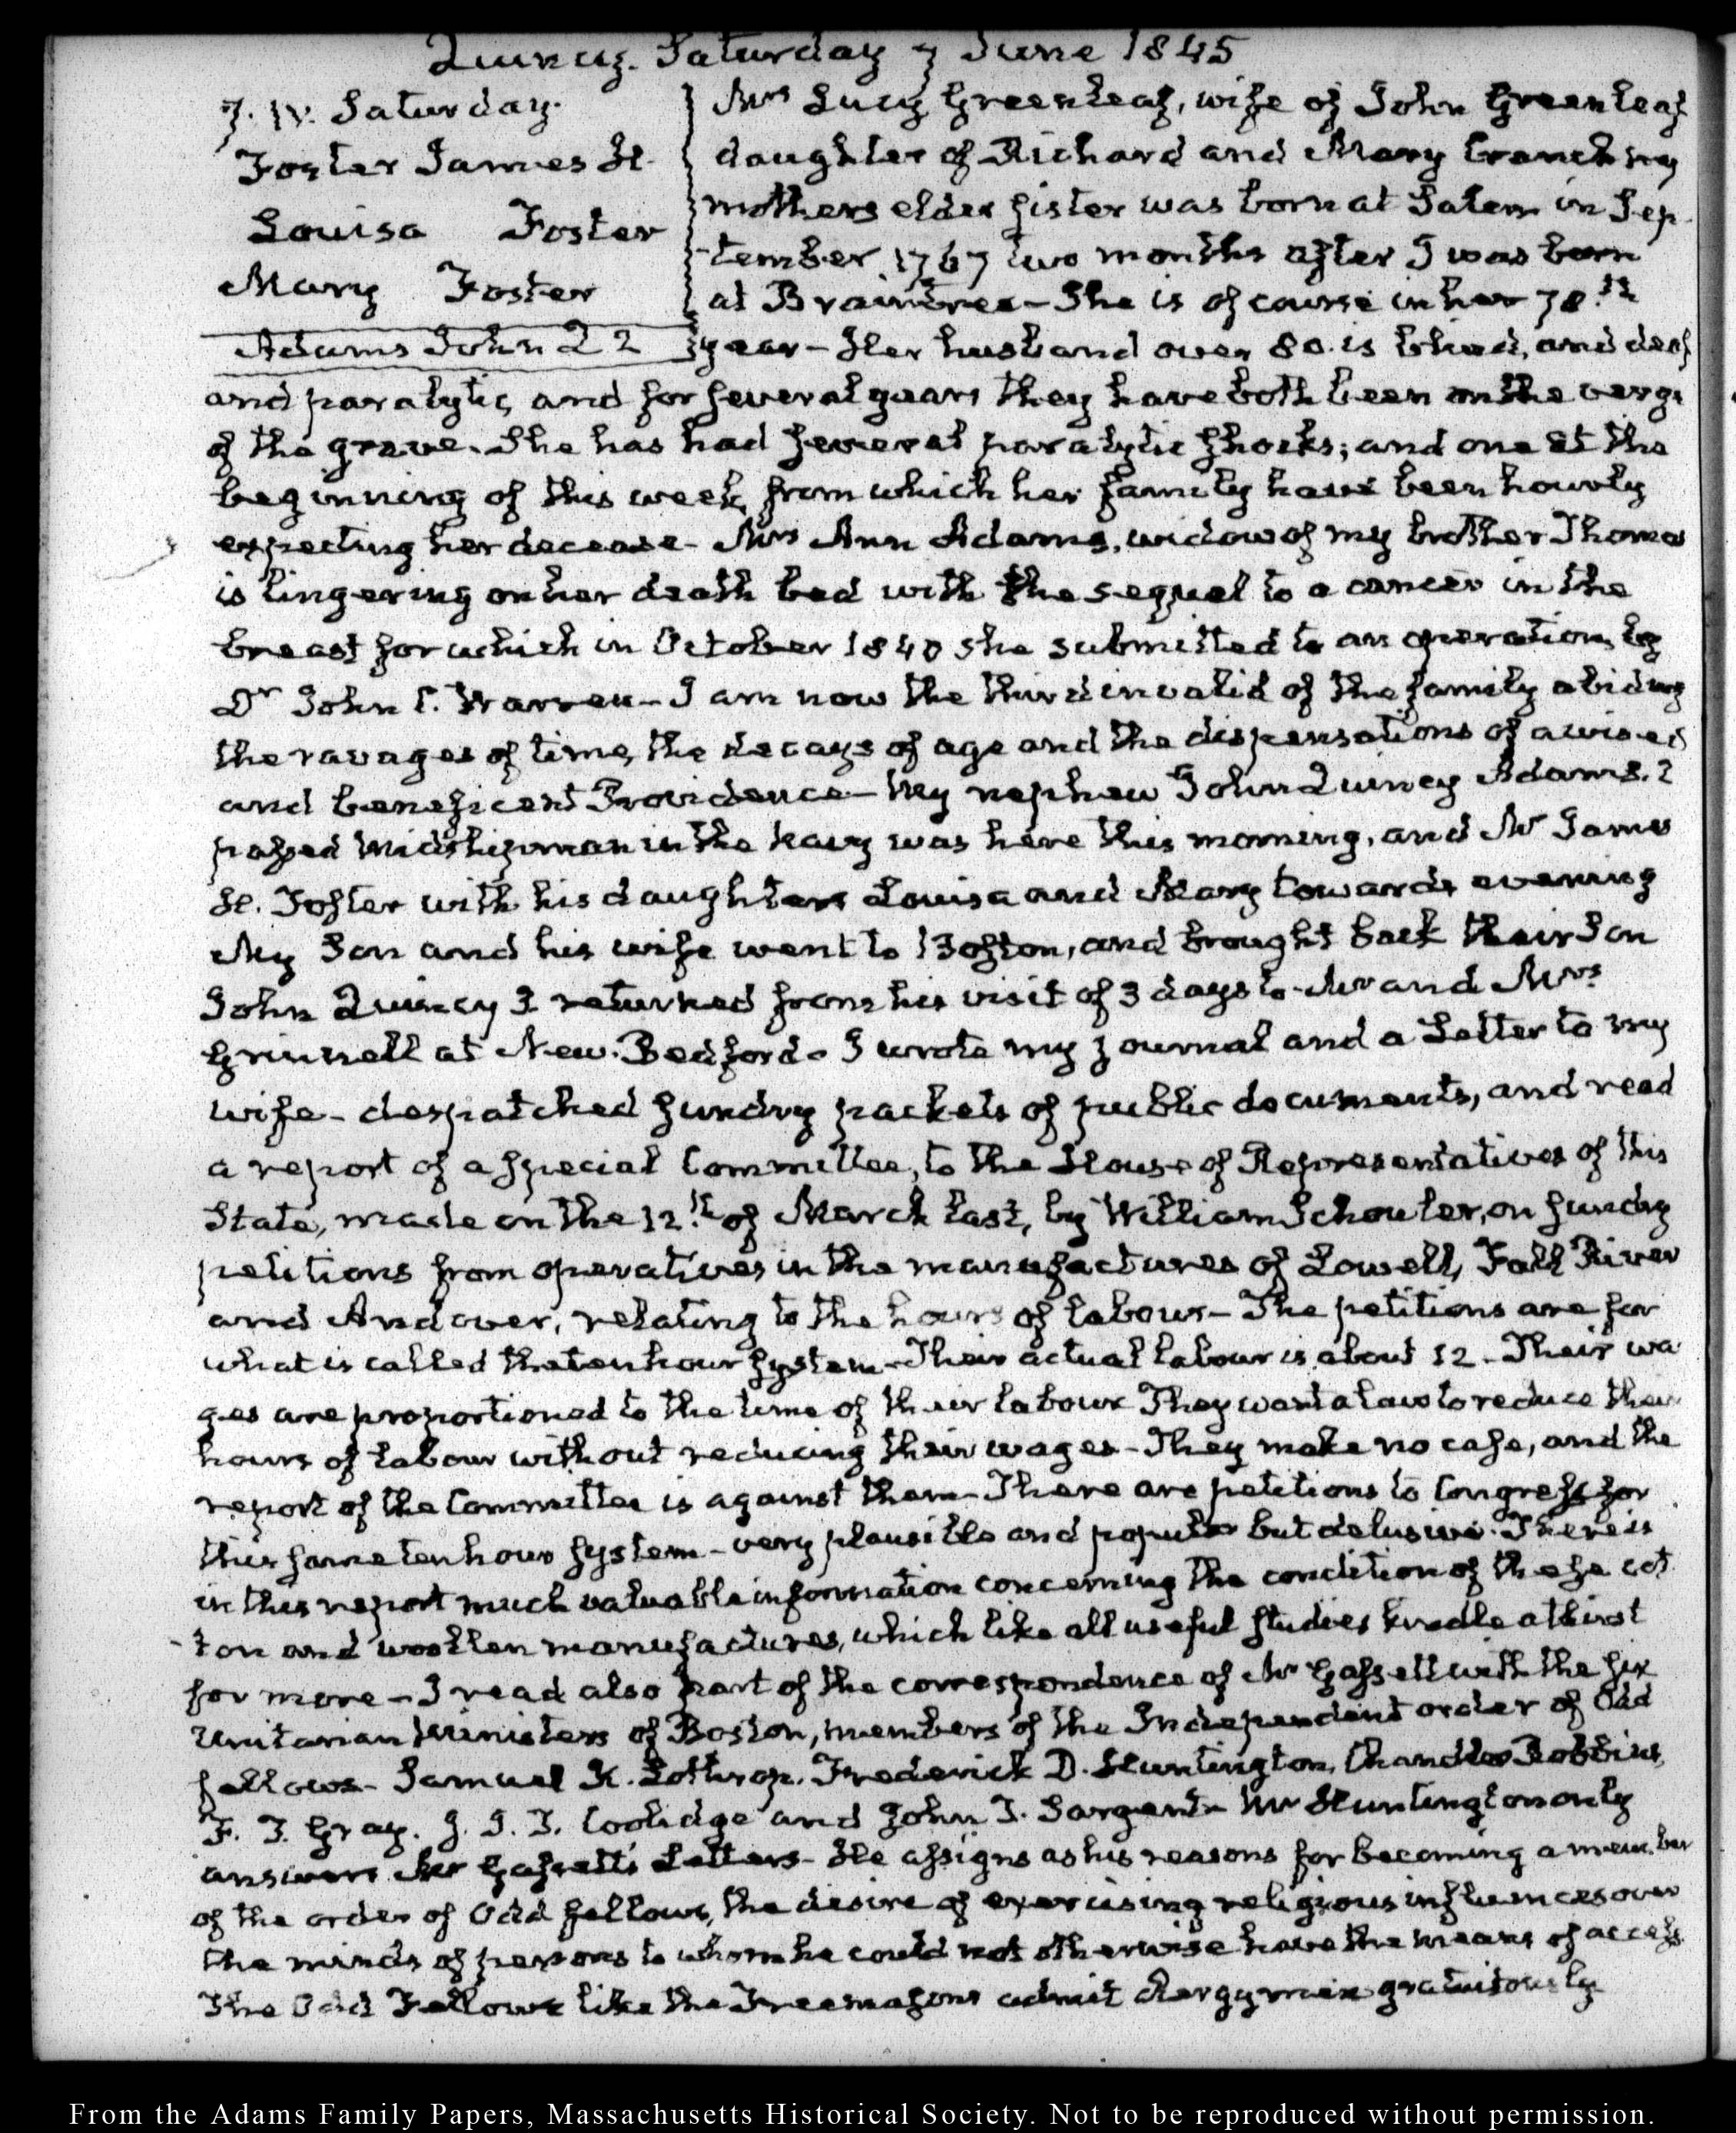 Quincy. Saturday 7 June 1845
7. IV. Saturday.
Foster James H.
Louisa Foster
Mary Foster
Adams John Q 2
Mrs Lucy Greenleaf, wife of John Greenleaf
daughter of Richard and Mary Cranch my
mothers elder sister was born at Salem in Sep-
-tember 1767 two months after I was born
at Braintree — She is of course in her 78.th
year — Her husband over 80. is blind, and deaf
and paralytic, and for several years they have both been on the verge
of the grave. She has had several paralytic shocks; and one at the
beginning of this week, from which her family have been hourly
expecting her decease — Mrs Ann Adams, widow of my brother Thomas
is lingering on her death bed with the sequel to a cancer in the
breast for which in October 1840 she submitted to an operation, by
Dr John C. Warren — I am now the third invalid of the family abiding
the ravages of time, the decays of age and the dispensations of a wise
and beneficent Providence — My nephew John Quincy Adams. 2
passed Midshipman in the Navy was here this morning, and Mr James
H. Foster with his daughters Louisa and Mary towards evening
My Son and his wife went to Boston, and brought back their Son
John Quincy 3 returned from his visit of 3 days to Mr and Mrs
Grinnell at New-Bedford — I wrote my journal and a Letter to my
wife — despatched sundry packets of public documents, and read
a report of a special Committee, to the House of Representatives of this
State, made on the 12.th of March last, by William Schouler, on sundry
petitions from operatives in the manufactures of Lowell, Fall River
and Andover, relating to the hours of labour — The petitions are for
what is called the ten hour system — Their actual labour is about 12 — Their wa
ges are proportioned to the time of their labour They want a law to reduce their
hours of labour without reducing their wages — They make no case, and the
report of the Committee is against them — There are petitions to Congress for
this same ten hour system — very plausible and popular but delusive. There is
in this report much valuable information concerning the condition of these cot
-ton and woollen manufactures, which like all useful studies kindle a thirst
for more — I read also part of the correspondence of Mr Gassett with the six
Unitarian Ministers of Boston, members of the Independent order of Odd
fellows — Samuel K. Lothrop. Frederick D. Huntington, Chandler Robbins,
F. T. Gray. J. I. T. Coolidge and John T. Sargent — Mr Huntington only
answers Mr Gassett's Letters — He assigns as his reasons for becoming a member
of the order of Odd fellows, the desire of exercising religious influences over
the minds of persons to whom he could not otherwise have the means of access
The Odd Fellows like the Freemasons admit clergymen gratuitously
From the Adams Family Papers, Massachusetts Historical Society. Not to be reproduced without permission.